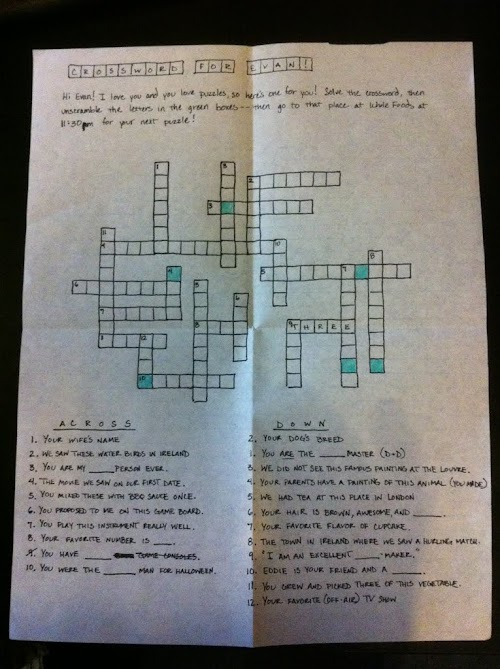 CROSSWORD FOR EVAN!
Hi Evan! I love you and you love puzzles, so here's one for you! Solve the crossword, then
unscramble the letters in the green boxes -- then go to that place at Whole Foods at
11:30pm for your next puzzle!
1 8 2
3
11
4 10 8
4 5 7
6 5
6
7 8 9 THREE
9 12
10
ACROSS
1. YOUR WIFE'S NAME
2. WE SAW THESE WATER BIRDS IN IRELAND
3. YOU ARE MY ____ PERSON EVER.
4. THE MOVIE WE SAW ON OUR FIRST DATE.
5. YOU MIXED THESE WITH BBQ SAUCE ONCE.
6. YOU PROPOSED TO ME ON THIS GAME BOARD.
7. YOU PLAY THIS INSTRUMENT REALLY WELL.
8. YOUR FAVORITE NUMBER IS ___.
9. YOU HAVE ____ CONSOLES.
10. YOU WERE THE ____ MAN FOR HALLOWEEN.
DOWN
2. YOUR DOG'S BREED
1. YOU ARE THE ____ MASTER (D+D)
3. WE DID NOT SEE THIS FAMOUS PAINTING AT THE LOUVRE.
4. YOUR PARENTS HAVE A PAINTING OF THIS ANIMAL (YOU MADE)
5. WE HAD TEA AT THIS PLACE IN LONDON
6. YOUR HAIR IS BROWN, AWESOME, AND ____.
7. YOUR FAVORITE FLAVOR OF CUPCAKE.
8. THE TOWN IN IRELAND WHERE WE SAW A HURLING MATCH.
9. "I AM AN EXCELLENT ____-MAKER."
10. EDDIE IS YOUR FRIEND AND A ____.
11. YOU GREW AND PICKED THREE OF THIS VEGETABLE.
12. YOUR FAVORITE (OFF-AIR) TV SHOW